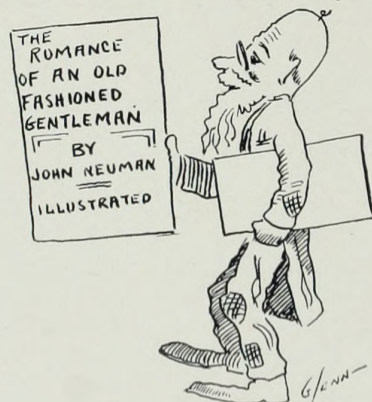 THE
ROMANCE
OF AN OLD
FASHIONED
GENTLEMAN.
BY
JOHN NEUMAN
ILLUSTRATED
Glenn